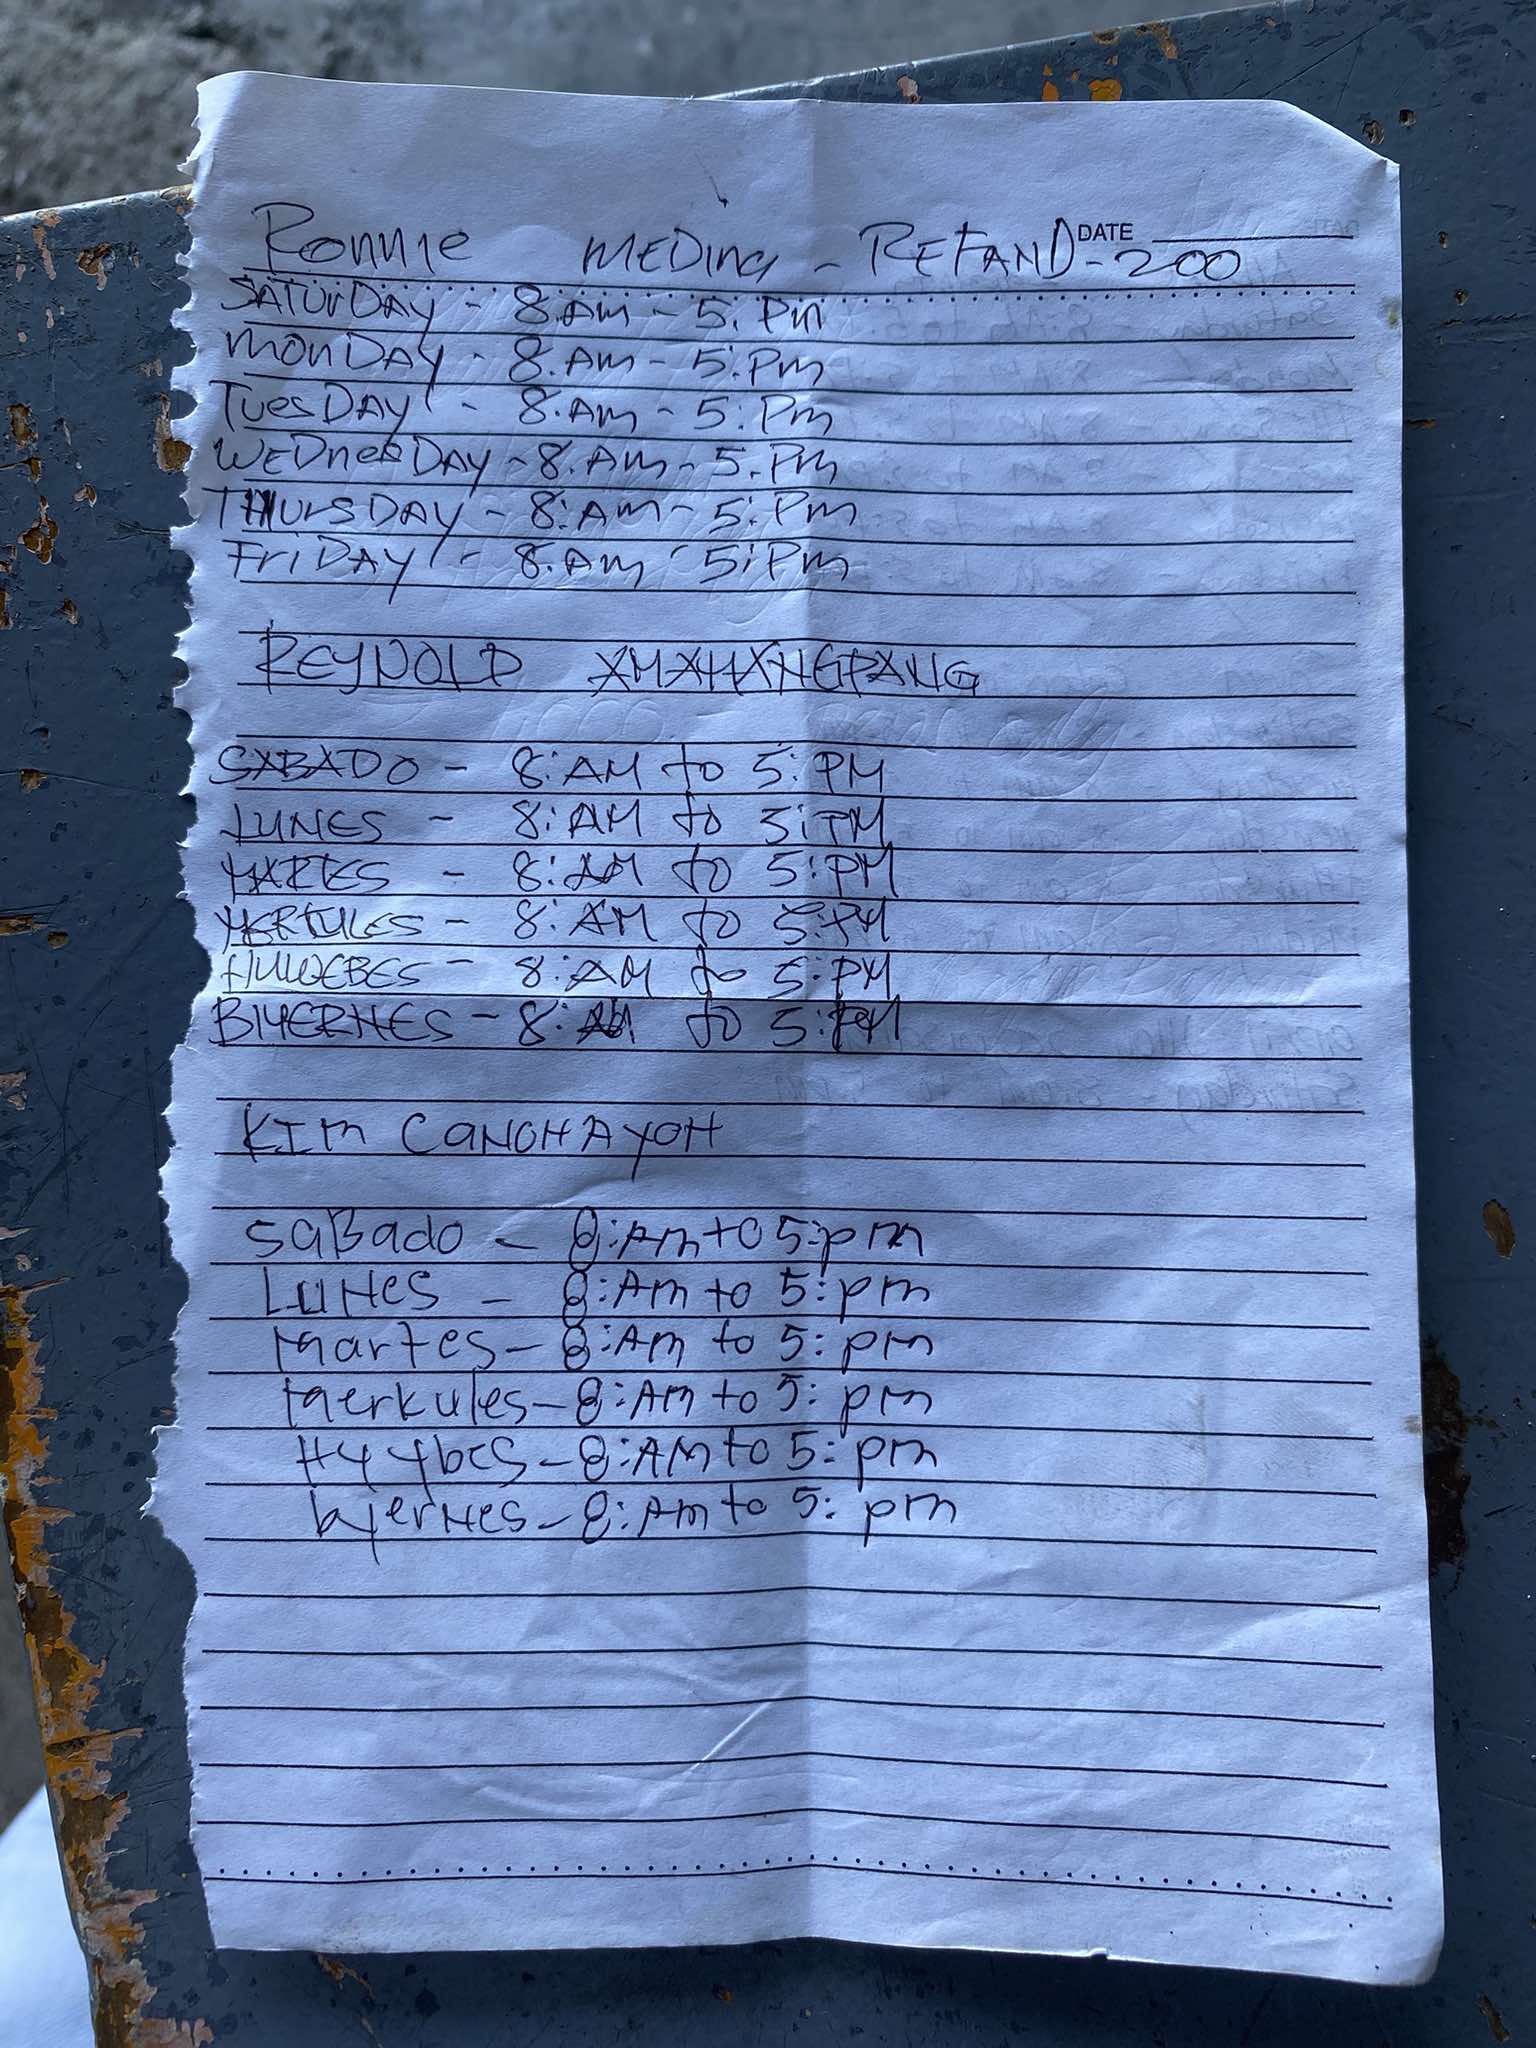 Ronnie MEDina - REFAND - 200
DATE
SATUrDAY - 8.AM - 5:Pm
MonDAY - 8.AM - 5:Pm
TuesDAY - 8.Am - 5:Pm
WEDnesDAY - 8.AM - 5.Pm
THUrsDAY - 8:AM - 5:Pm
FriDAY - 8.AM - 5:Pm
REYNOLD
SABADO - 8:AM to 5:PM
LUNES - 8:AM to 5:PM
MARTES - 8:AM to 5:PM
MERKULES - 8:AM to 5:PM
HUWEBES - 8:AM to 5:PM
BIYERNES - 8:AM to 5:PM
KIM CANOHAYOH
SaBado - 8:AM to 5:pm
LUNES - 8:AM to 5:pm
Martes - 8:AM to 5:pm
Merkules - 8:AM to 5:pm
Hyybes - 8:AM to 5:pm
byernes - 8:AM to 5:pm